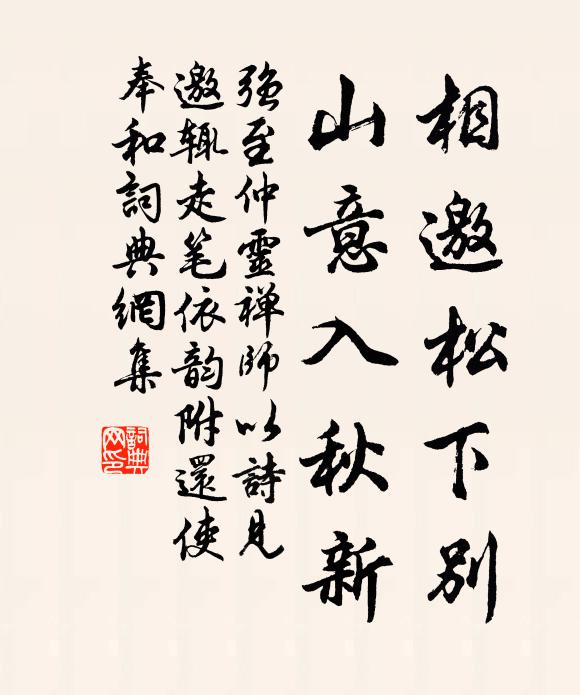 相邀松下別
山意入秋新
強至仲靈禅師以詩見
邀輒走笔依韵附還使
奉和詞典網集
詞典
网印